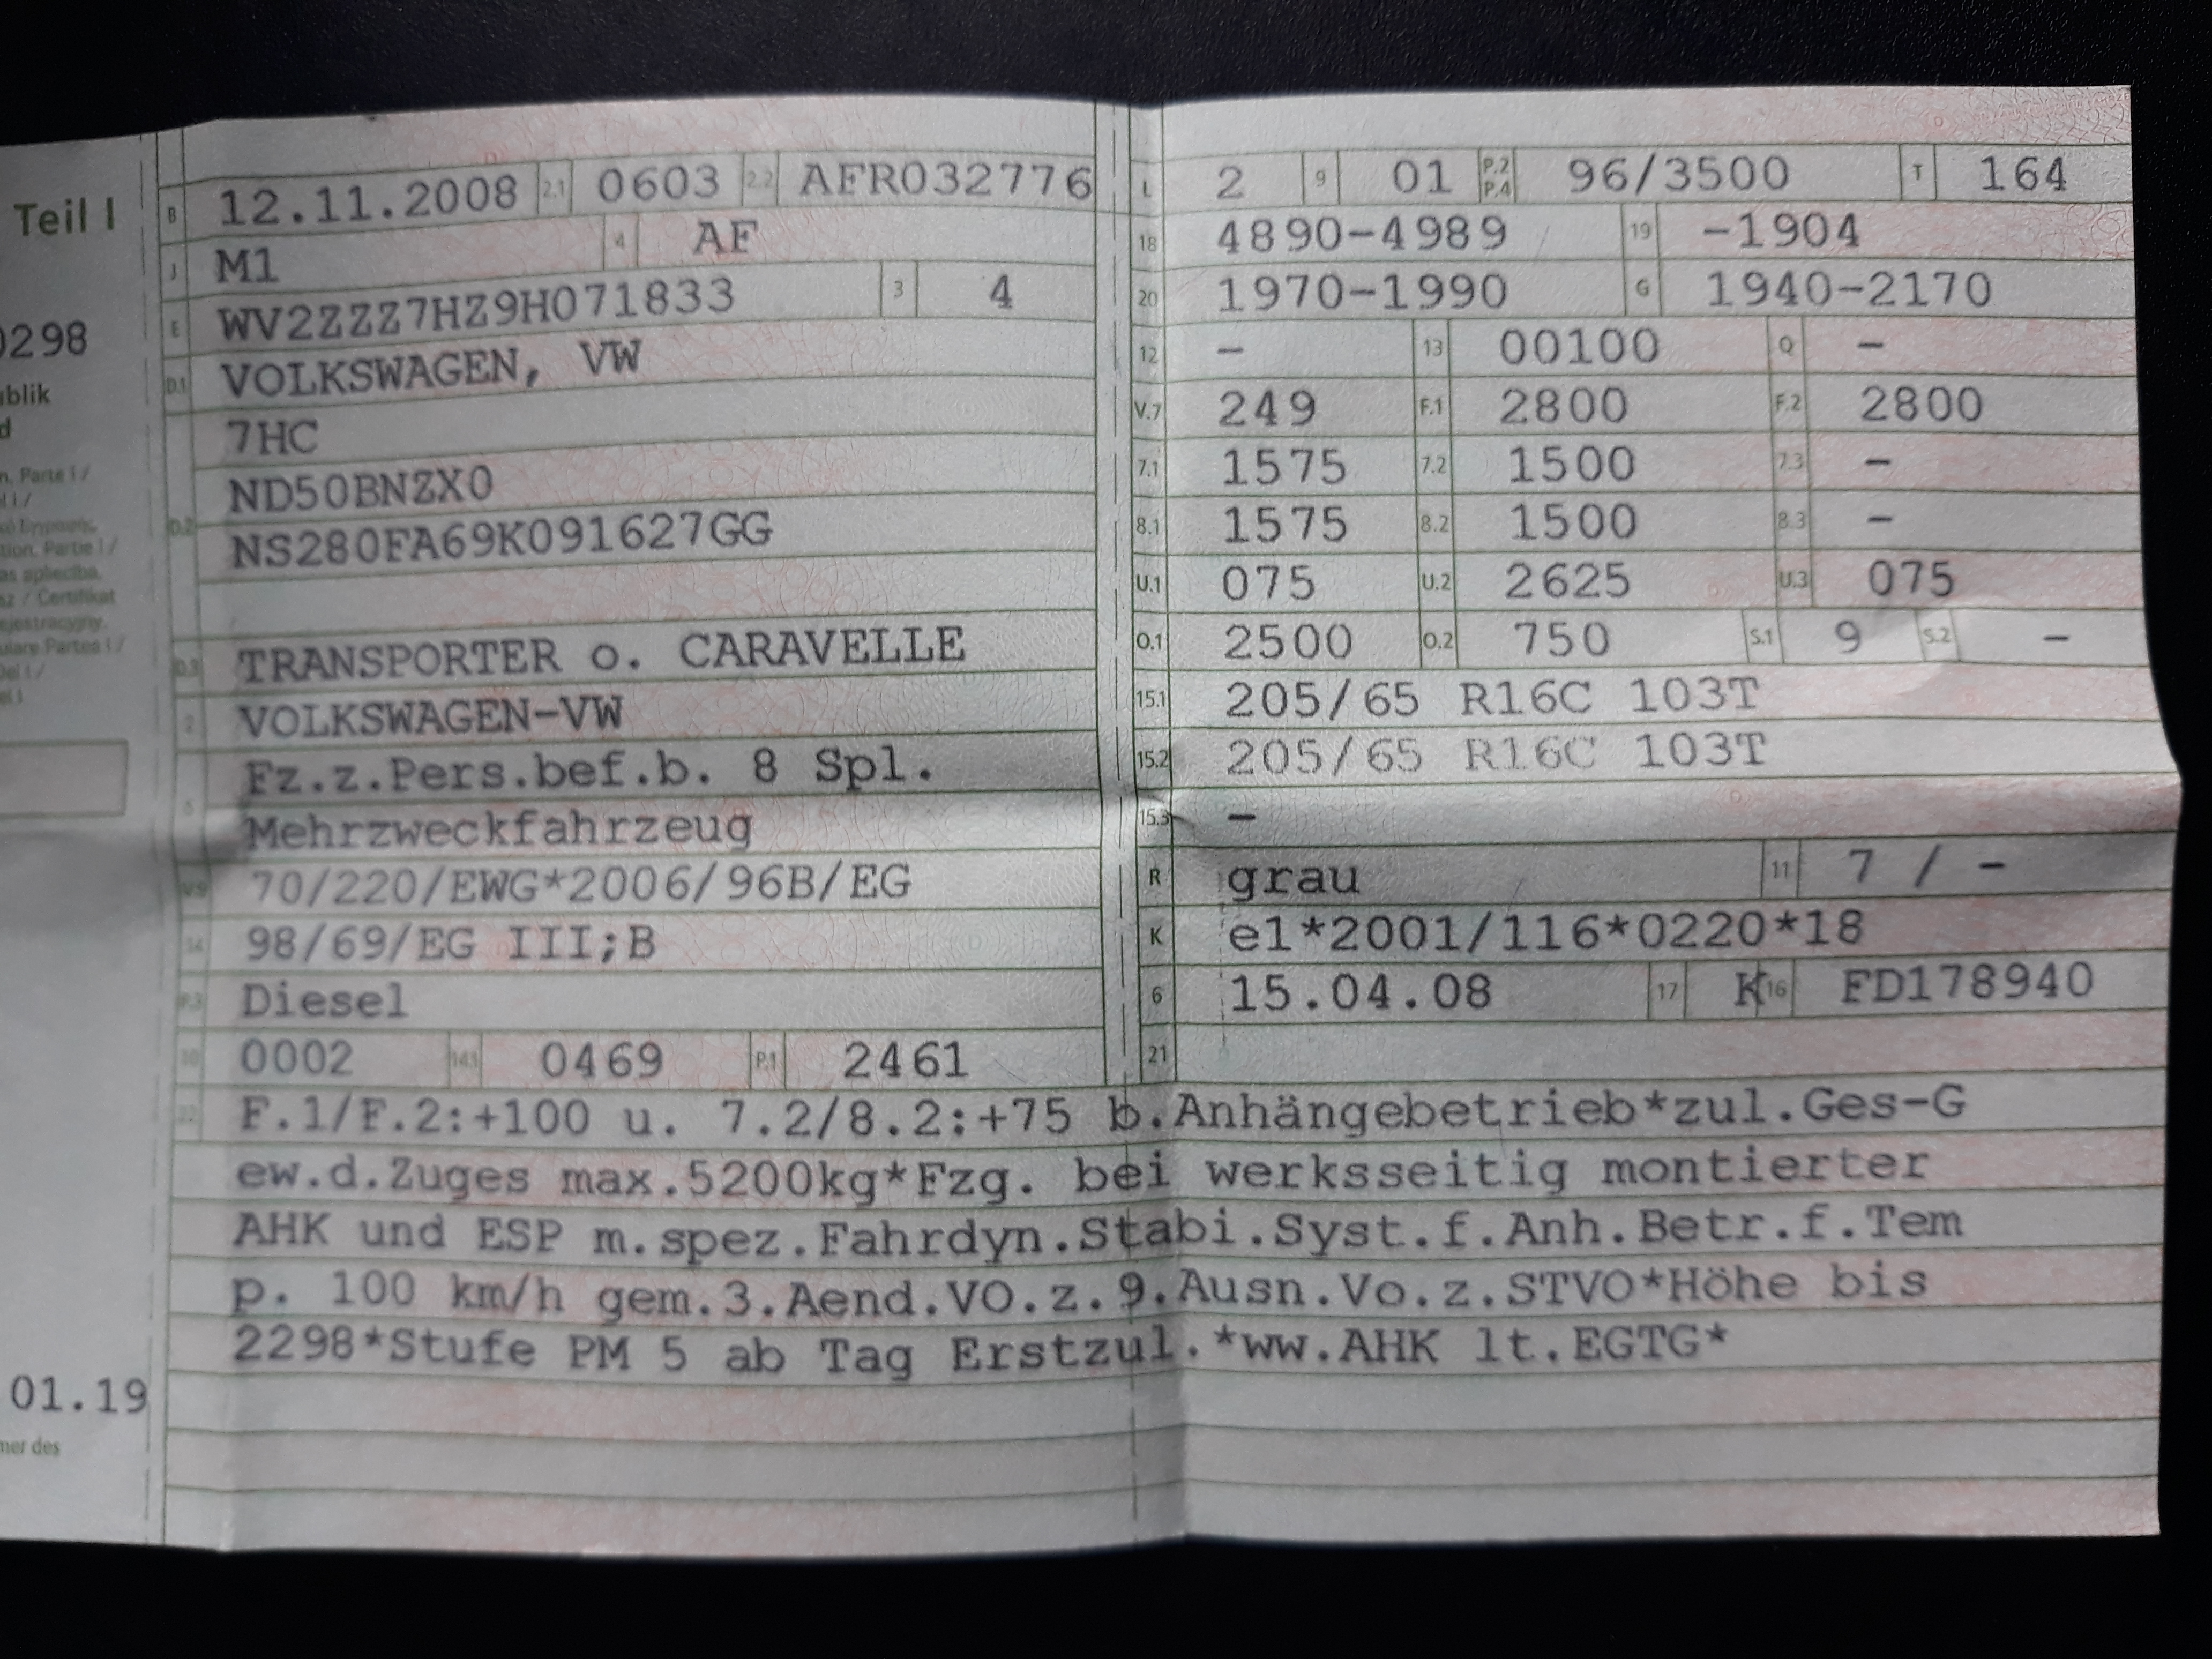 Teil I
0298
ublik
d
n. Parte I /
01.19
mer des
B 12.11.2008 2.1 0603 2.2 AFR032776
J M1 4 AF
E WV2ZZZ7HZ9H071833 3 4
D.1 VOLKSWAGEN, VW
7HC
D.2 ND50BNZX0
NS280FA69K091627GG
D.3 TRANSPORTER o. CARAVELLE
2 VOLKSWAGEN-VW
5 Fz.z.Pers.bef.b. 8 Spl.
Mehrzweckfahrzeug
V.9 70/220/EWG*2006/96B/EG
14 98/69/EG III;B
P.3 Diesel
10 0002 14.1 0469 P.1 2461
L 2 9 01 P.2 P.4 96/3500 T 164
18 4890-4989 19 -1904
20 1970-1990 G 1940-2170
12 - 13 00100 Q -
V.7 249 F.1 2800 F.2 2800
7.1 1575 7.2 1500 7.3 -
8.1 1575 8.2 1500 8.3 -
U.1 075 U.2 2625 U.3 075
O.1 2500 O.2 750 S.1 9 S.2 -
15.1 205/65 R16C 103T
15.2 205/65 R16C 103T
15.3 -
R grau 11 7 / -
K e1*2001/116*0220*18
6 15.04.08 17 K 16 FD178940
21
22 F.1/F.2:+100 u. 7.2/8.2:+75 b.Anhängebetrieb*zul.Ges-G
ew.d.Zuges max.5200kg*Fzg. bei werksseitig montierter
AHK und ESP m.spez.Fahrdyn.Stabi.Syst.f.Anh.Betr.f.Tem
p. 100 km/h gem.3.Aend.VO.z.9.Ausn.Vo.z.STVO*Höhe bis
2298*Stufe PM 5 ab Tag Erstzul.*ww.AHK lt.EGTG*